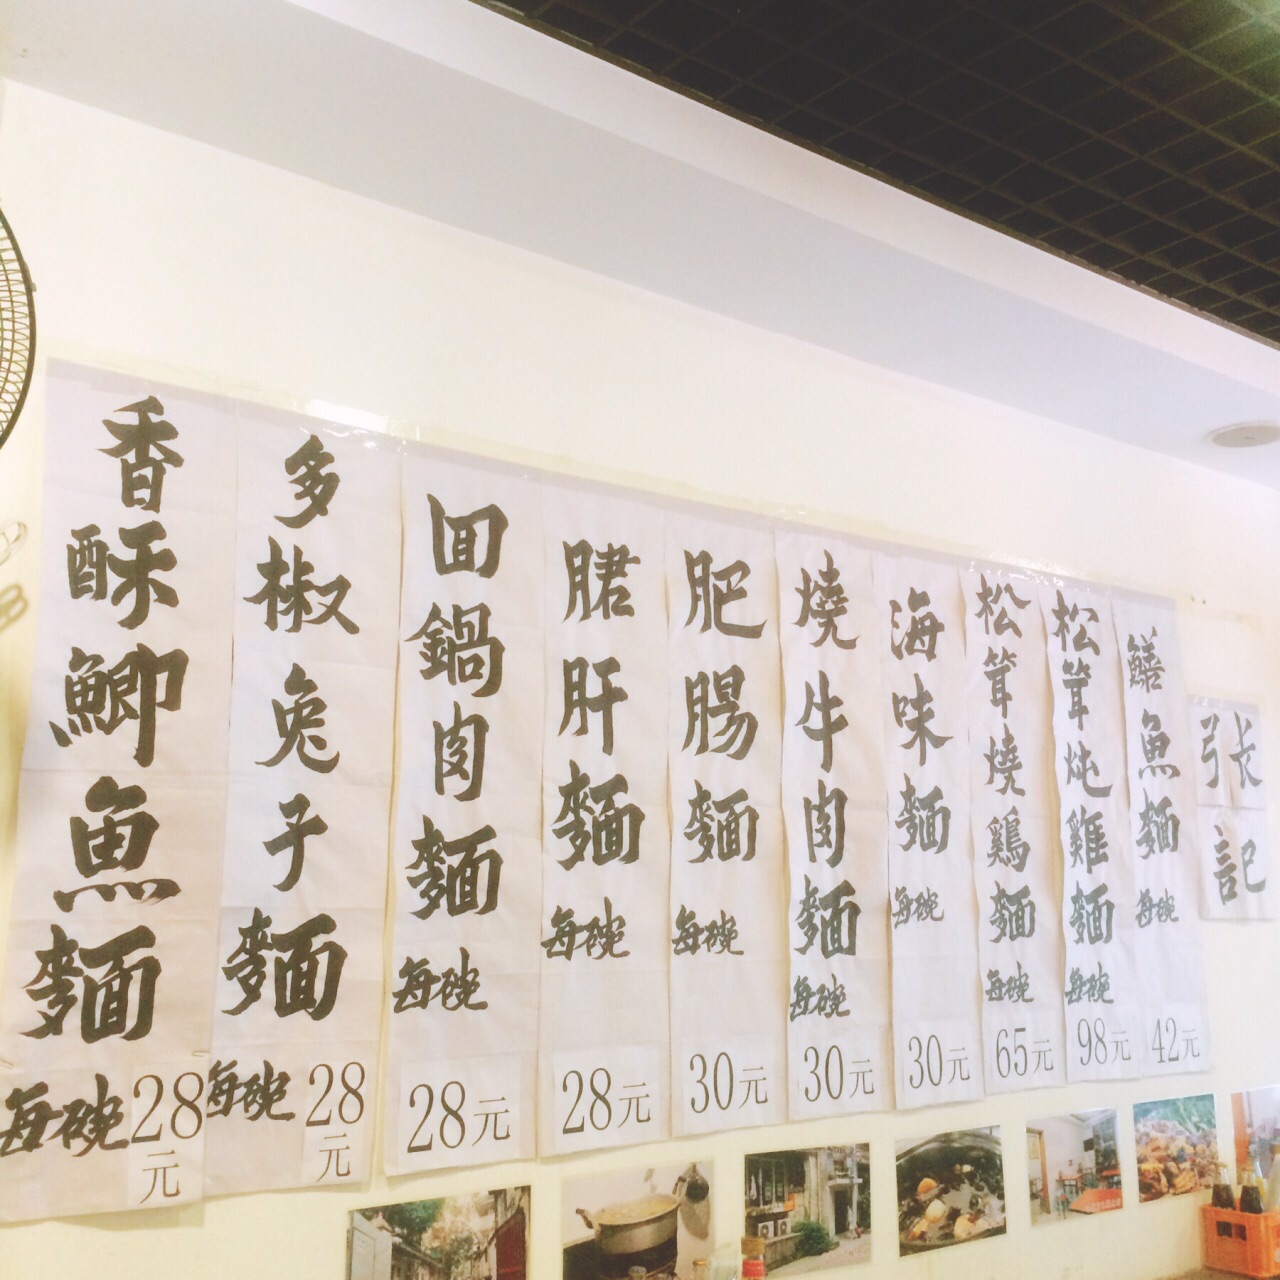 香酥鯽魚麵
每碗28元
多椒兔子麵
每碗28元
回鍋肉麵
每碗
28元
䐃肝麵
每碗
28元
肥腸麵
每碗
30元
燒牛肉麵
每碗
30元
海味麵
每碗
30元
松茸燒鷄麵
每碗
65元
松茸炖雞麵
每碗
98元
鱔魚麵
每碗
42元
張記